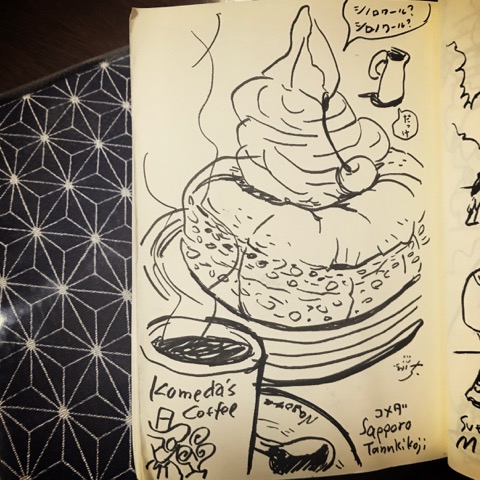 シノワール?
シロノワール?
だっけ
Komeda's
Coffee
コメダ
Sapporo
Tannkikoji